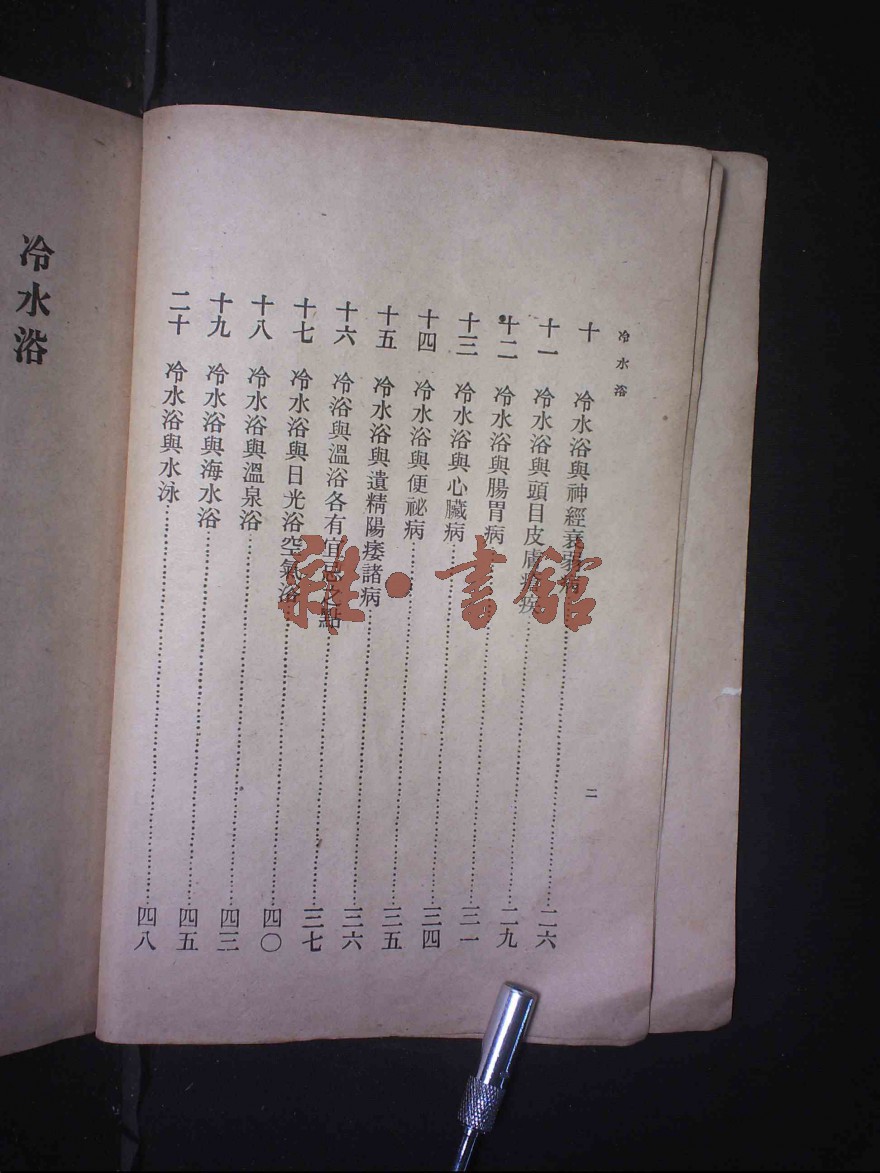 冷水浴
二
十 冷水浴與神經衰弱病……二六
十一 冷水浴與頭目皮膚疾……二九
十二 冷水浴與腸胃病……三一
十三 冷水浴與心臟病……三四
十四 冷水浴與便祕病……三五
十五 冷水浴與遺精陽痿諸病……三六
十六 冷浴與溫浴各有宜忌之點……三七
十七 冷水浴與日光浴空氣浴……四〇
十八 冷水浴與溫泉浴……四三
十九 冷水浴與海水浴……四五
二十 冷水浴與水泳……四八
冷水浴
雜·書館